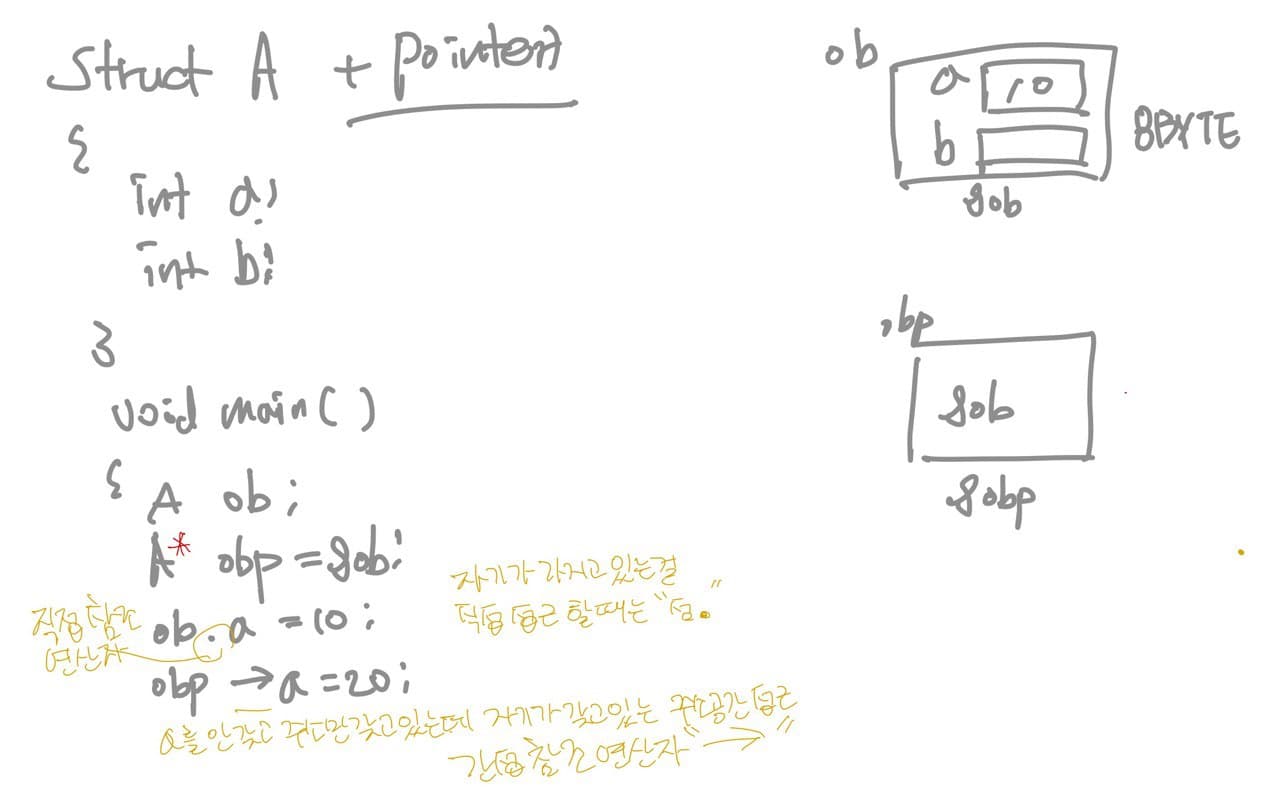 struct A + pointer
{
int a;
int b;
}
void main( )
{ A ob;
A* obp = &ob;
ob.a = 10;
obp → a = 20;
직접 참조
연산자
자기가 가지고 있는걸
직접 접근 할때는 "점."
a를 안갖고 주소만 갖고 있는데 자기가 갖고 있는 주소공간 접근
간접 참조 연산자 "→"
ob
a 10
b
8BYTE
&ob
obp
&ob
&obp